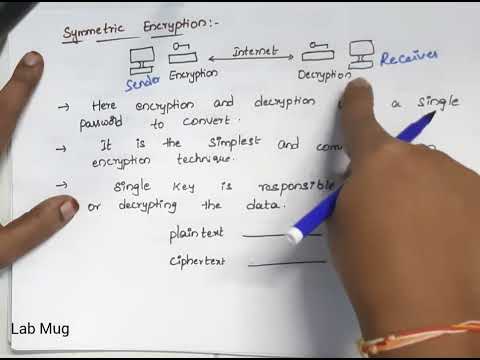 Symmetric Encryption:-
Internet
Sender Encryption Decryption Receiver
→ Here encryption and decryption a single
password to convert.
→ It is the simplest and
encryption technique.
→ Single key is responsible
or decrypting the data.
plaintext
ciphertext
Lab Mug